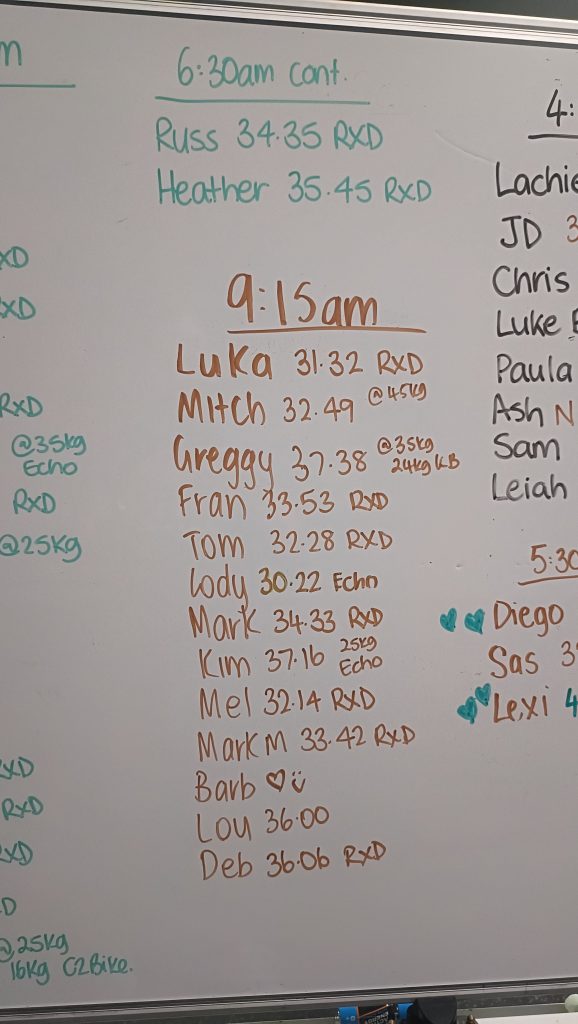 m
6:30am cont.
Russ 34.35 RXD
Heather 35.45 RXD
XD
XD
RXD
@35kg
Echo
RXD
@25kg
XD
RXD
XD
D
@25kg
16kg C2Bike.
9:15am
Luka 31.32 RXD
Mitch 32.49 @45kg
Greggy 37.38 @35kg
24kg KB
Fran 33.53 RXD
Tom 32.28 RXD
Cody 30.22 Echo
Mark 34.33 RXD
Kim 37.16 25kg
Echo
Mel 32.14 RXD
Mark M 33.42 RXD
Barb ♡ü
Lou 36.00
Deb 36.06 RXD
4:
Lachie
JD 3
Chris
Luke
Paula
Ash N
Sam
Leiah
5:30
Diego
Sas 3
Lexi 4